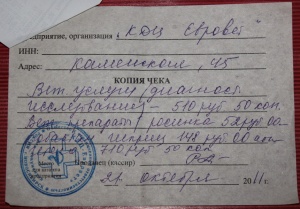 приятие, организация "КДЦ Евровет"
ИНН:
Адрес: Каменская, 45
КОПИЯ ЧЕКА
Вет услуги / диагност
исследования - 510 руб 50 коп.
Вет препарат / 52 руб 00
шприц 148 руб 00 коп
710 руб 50 коп
(кассир)
21 октября 2011г.